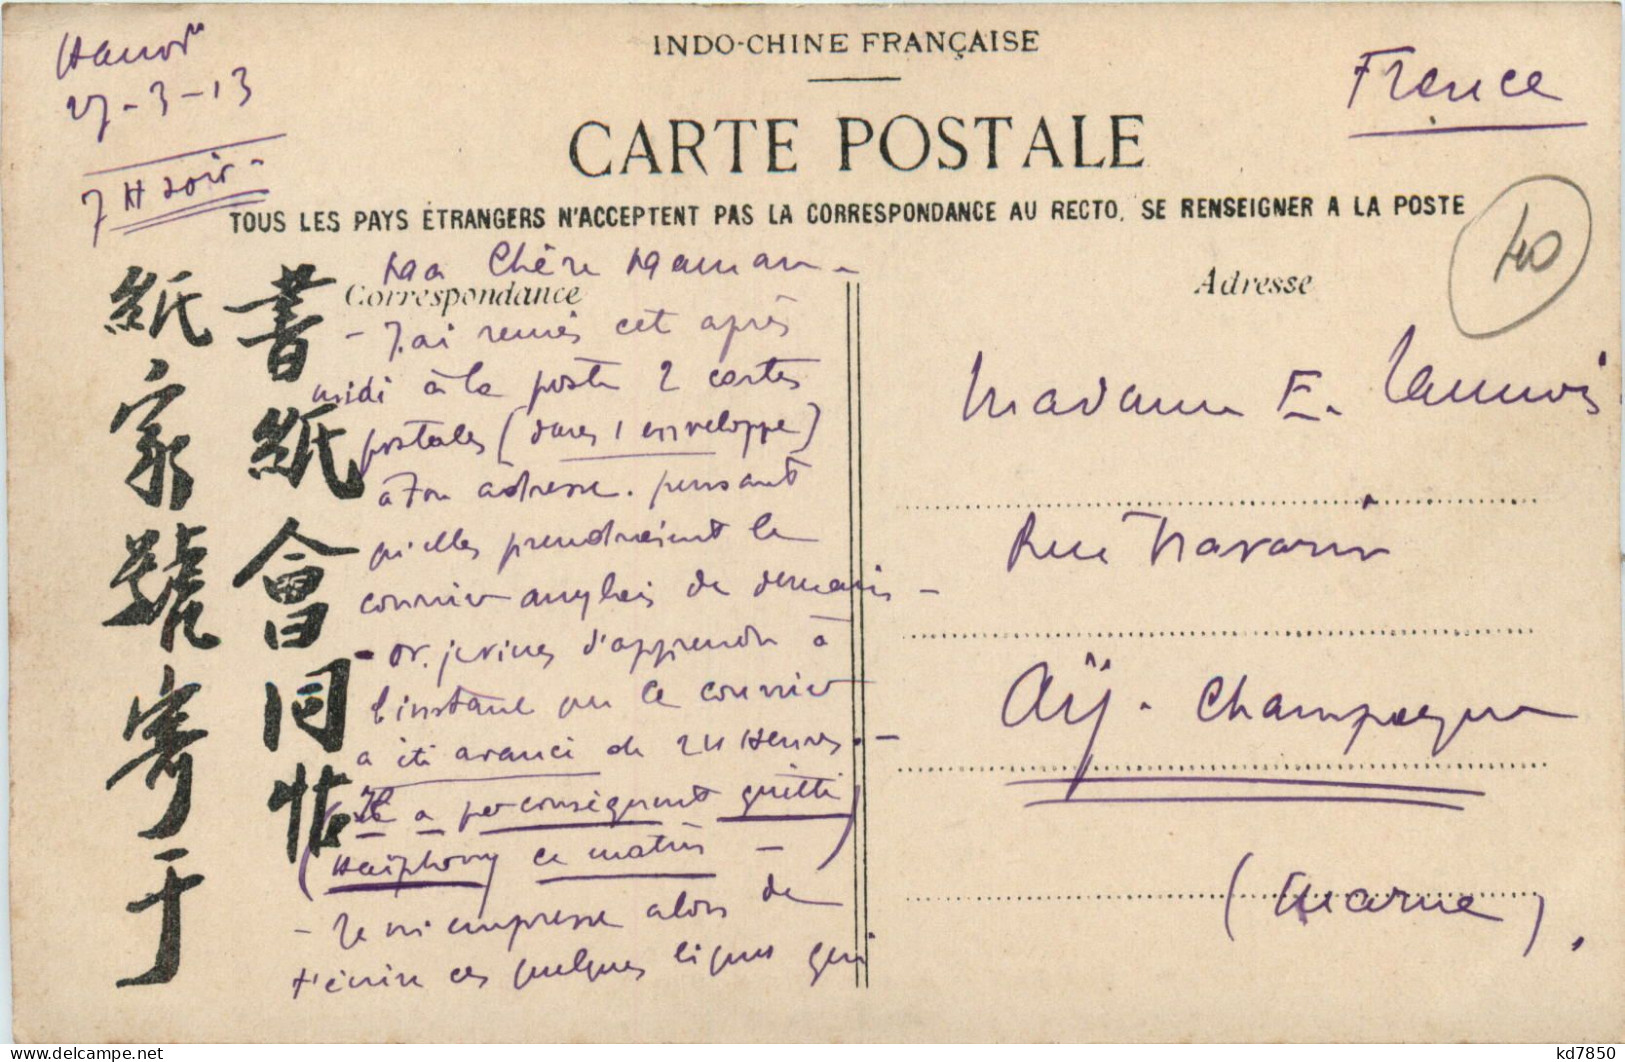 Hanoï
27-3-13
7 H soir -
INDO-CHINE FRANÇAISE
France
CARTE POSTALE
TOUS LES PAYS ÉTRANGERS N'ACCEPTENT PAS LA CORRESPONDANCE AU RECTO, SE RENSEIGNER A LA POSTE
40
書紙會同帖
紙家號寄于
Correspondance
Ma Chère Maman -
- J'ai remis cet après
midi à la poste 2 cartes
postales (dans 1 enveloppe)
à ton adresse. pensant
qu'elles prendraient le
courrier anglais de demain -
- or. je viens d'apprendre à
l'instant que ce courrier
a été avancé de 24 Heures. -
(Il a par conséquent quitté
Haïphong ce matin - )
- Je m'empresse alors de
t'écrire ces quelques lignes qui
Adresse
Madame E.
Rue Navarin
Aÿ - Champagne
(Marne).
kd7850